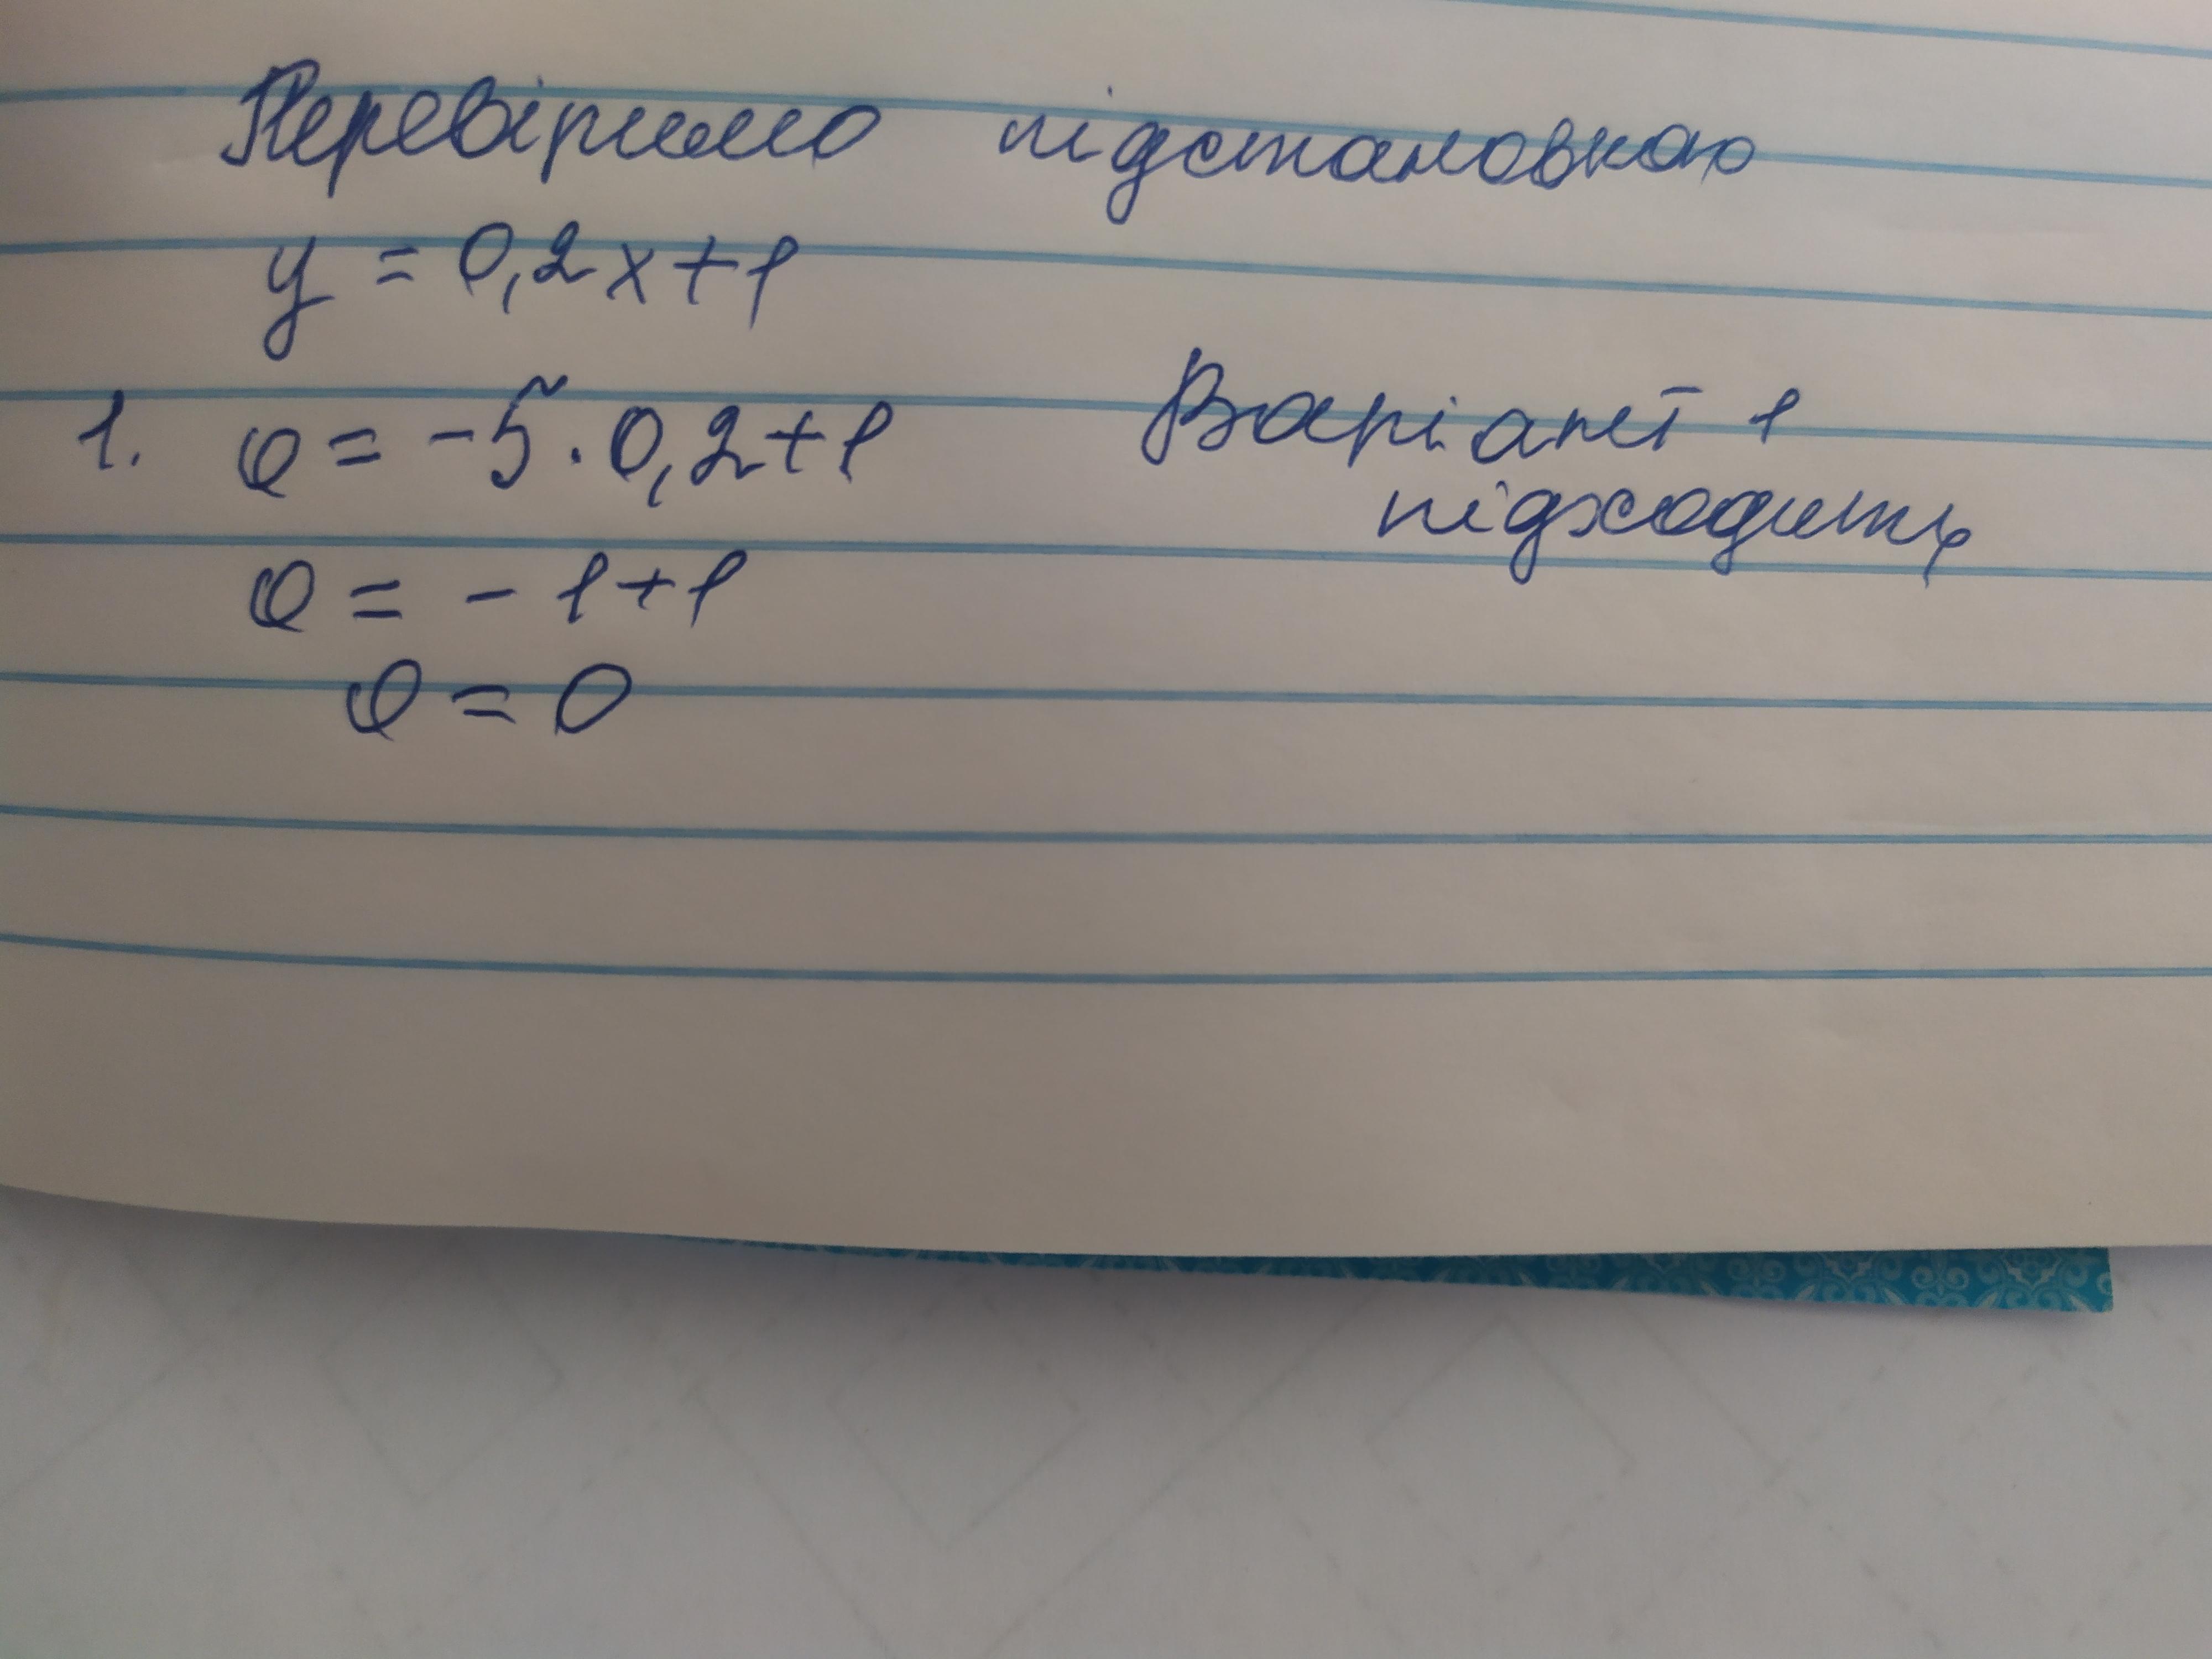 Перевіримо підстановкою
y = 0,2x+1
1. 0 = -5·0,2+1
Варіант 1
підходить
0 = -1+1
0 = 0